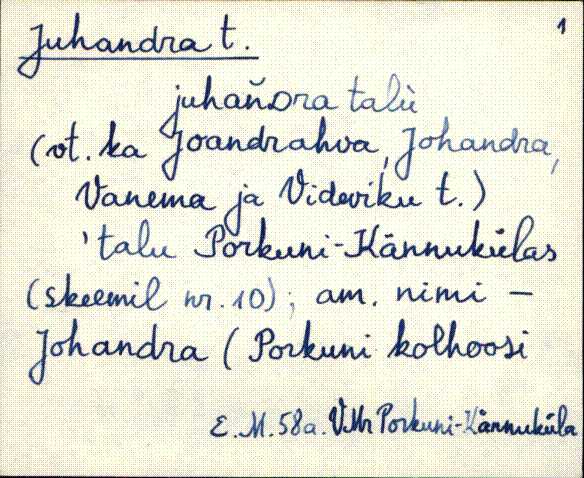 1
Juhandra t.
juhaňDra talù
(vt. ka Joandrahva, Johandra,
Vanema ja Videviku t.)
'talu Porkuni-Kännukülas
(skeemil nr. 10); am. nimi –
Johandra (Porkuni kolhoosi
E. M. 58a. VMr Porkuni-Kännuküla